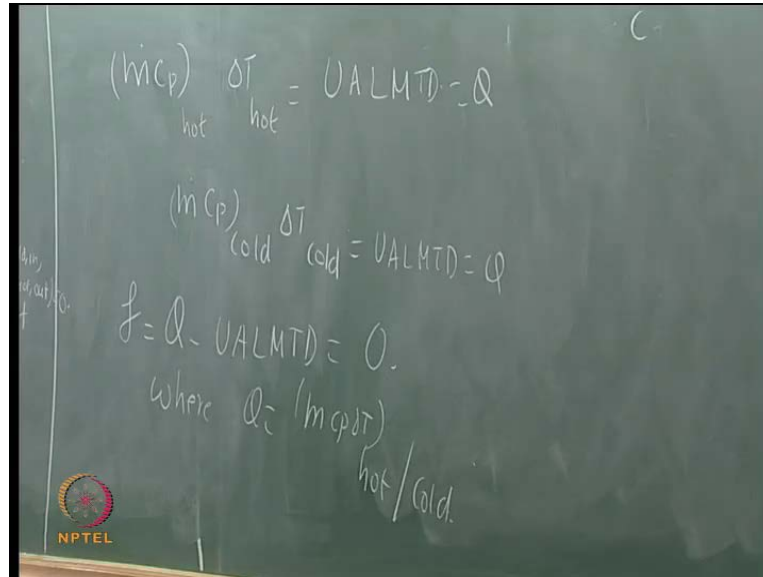 C
(ṁCp)hot ΔThot = UALMTD = Q
(ṁCp)cold ΔTcold = UALMTD = Q
f = Q - UALMTD = 0.
where Q = (mcpΔT)hot/cold.
NPTEL